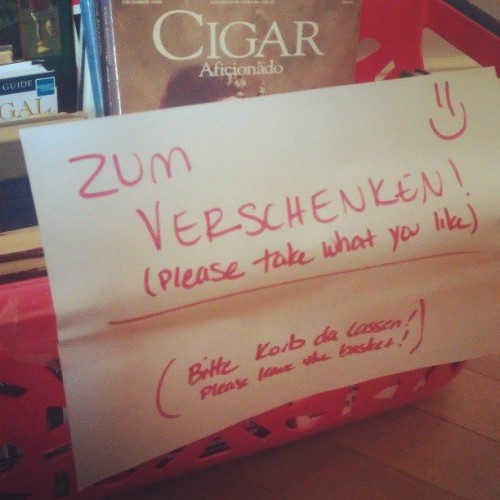 CIGAR
Aficionado
GUIDE
GAL
ZUM
VERSCHENKEN!
(please take what you like)
(Bitte Korb da lassen!
please leave the basket!)